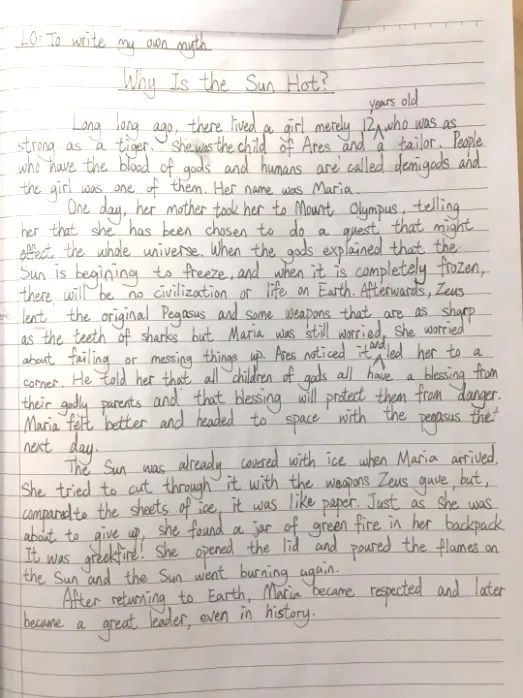 LO: To write my own myth
Why Is the Sun Hot?
years old
Long long ago, there lived a girl merely 12 who was as
strong as a tiger. She was the child of Ares and a tailor. People
who have the blood of gods and humans are called demigods and
the girl was one of them. Her name was Maria.
One day, her mother took her to Mount Olympus, telling
her that she has been chosen to do a quest that might
effect the whole universe. When the gods explained that the
Sun is begining to freeze, and when it is completely frozen,
there will be no civilization or life on Earth. Afterwards, Zeus
lent the original Pegasus and some weapons that are as sharp
as the teeth of sharks but Maria was still worried. She worried
about failing or messing things up. Ares noticed it and led her to a
corner. He told her that all children of gods all have a blessing from
their godly parents and that blessing will protect them from danger.
Maria felt better and headed to space with the pegasus the
next day.
The Sun was already covered with ice when Maria arrived.
She tried to cut through it with the weapons Zeus gave, but,
compared to the sheets of ice, it was like paper. Just as she was
about to give up, she found a jar of green fire in her backpack.
It was greekfire! She opened the lid and poured the flames on
the Sun and the Sun went burning again.
After returning to Earth, Maria became respected and later
became a great leader, even in history.